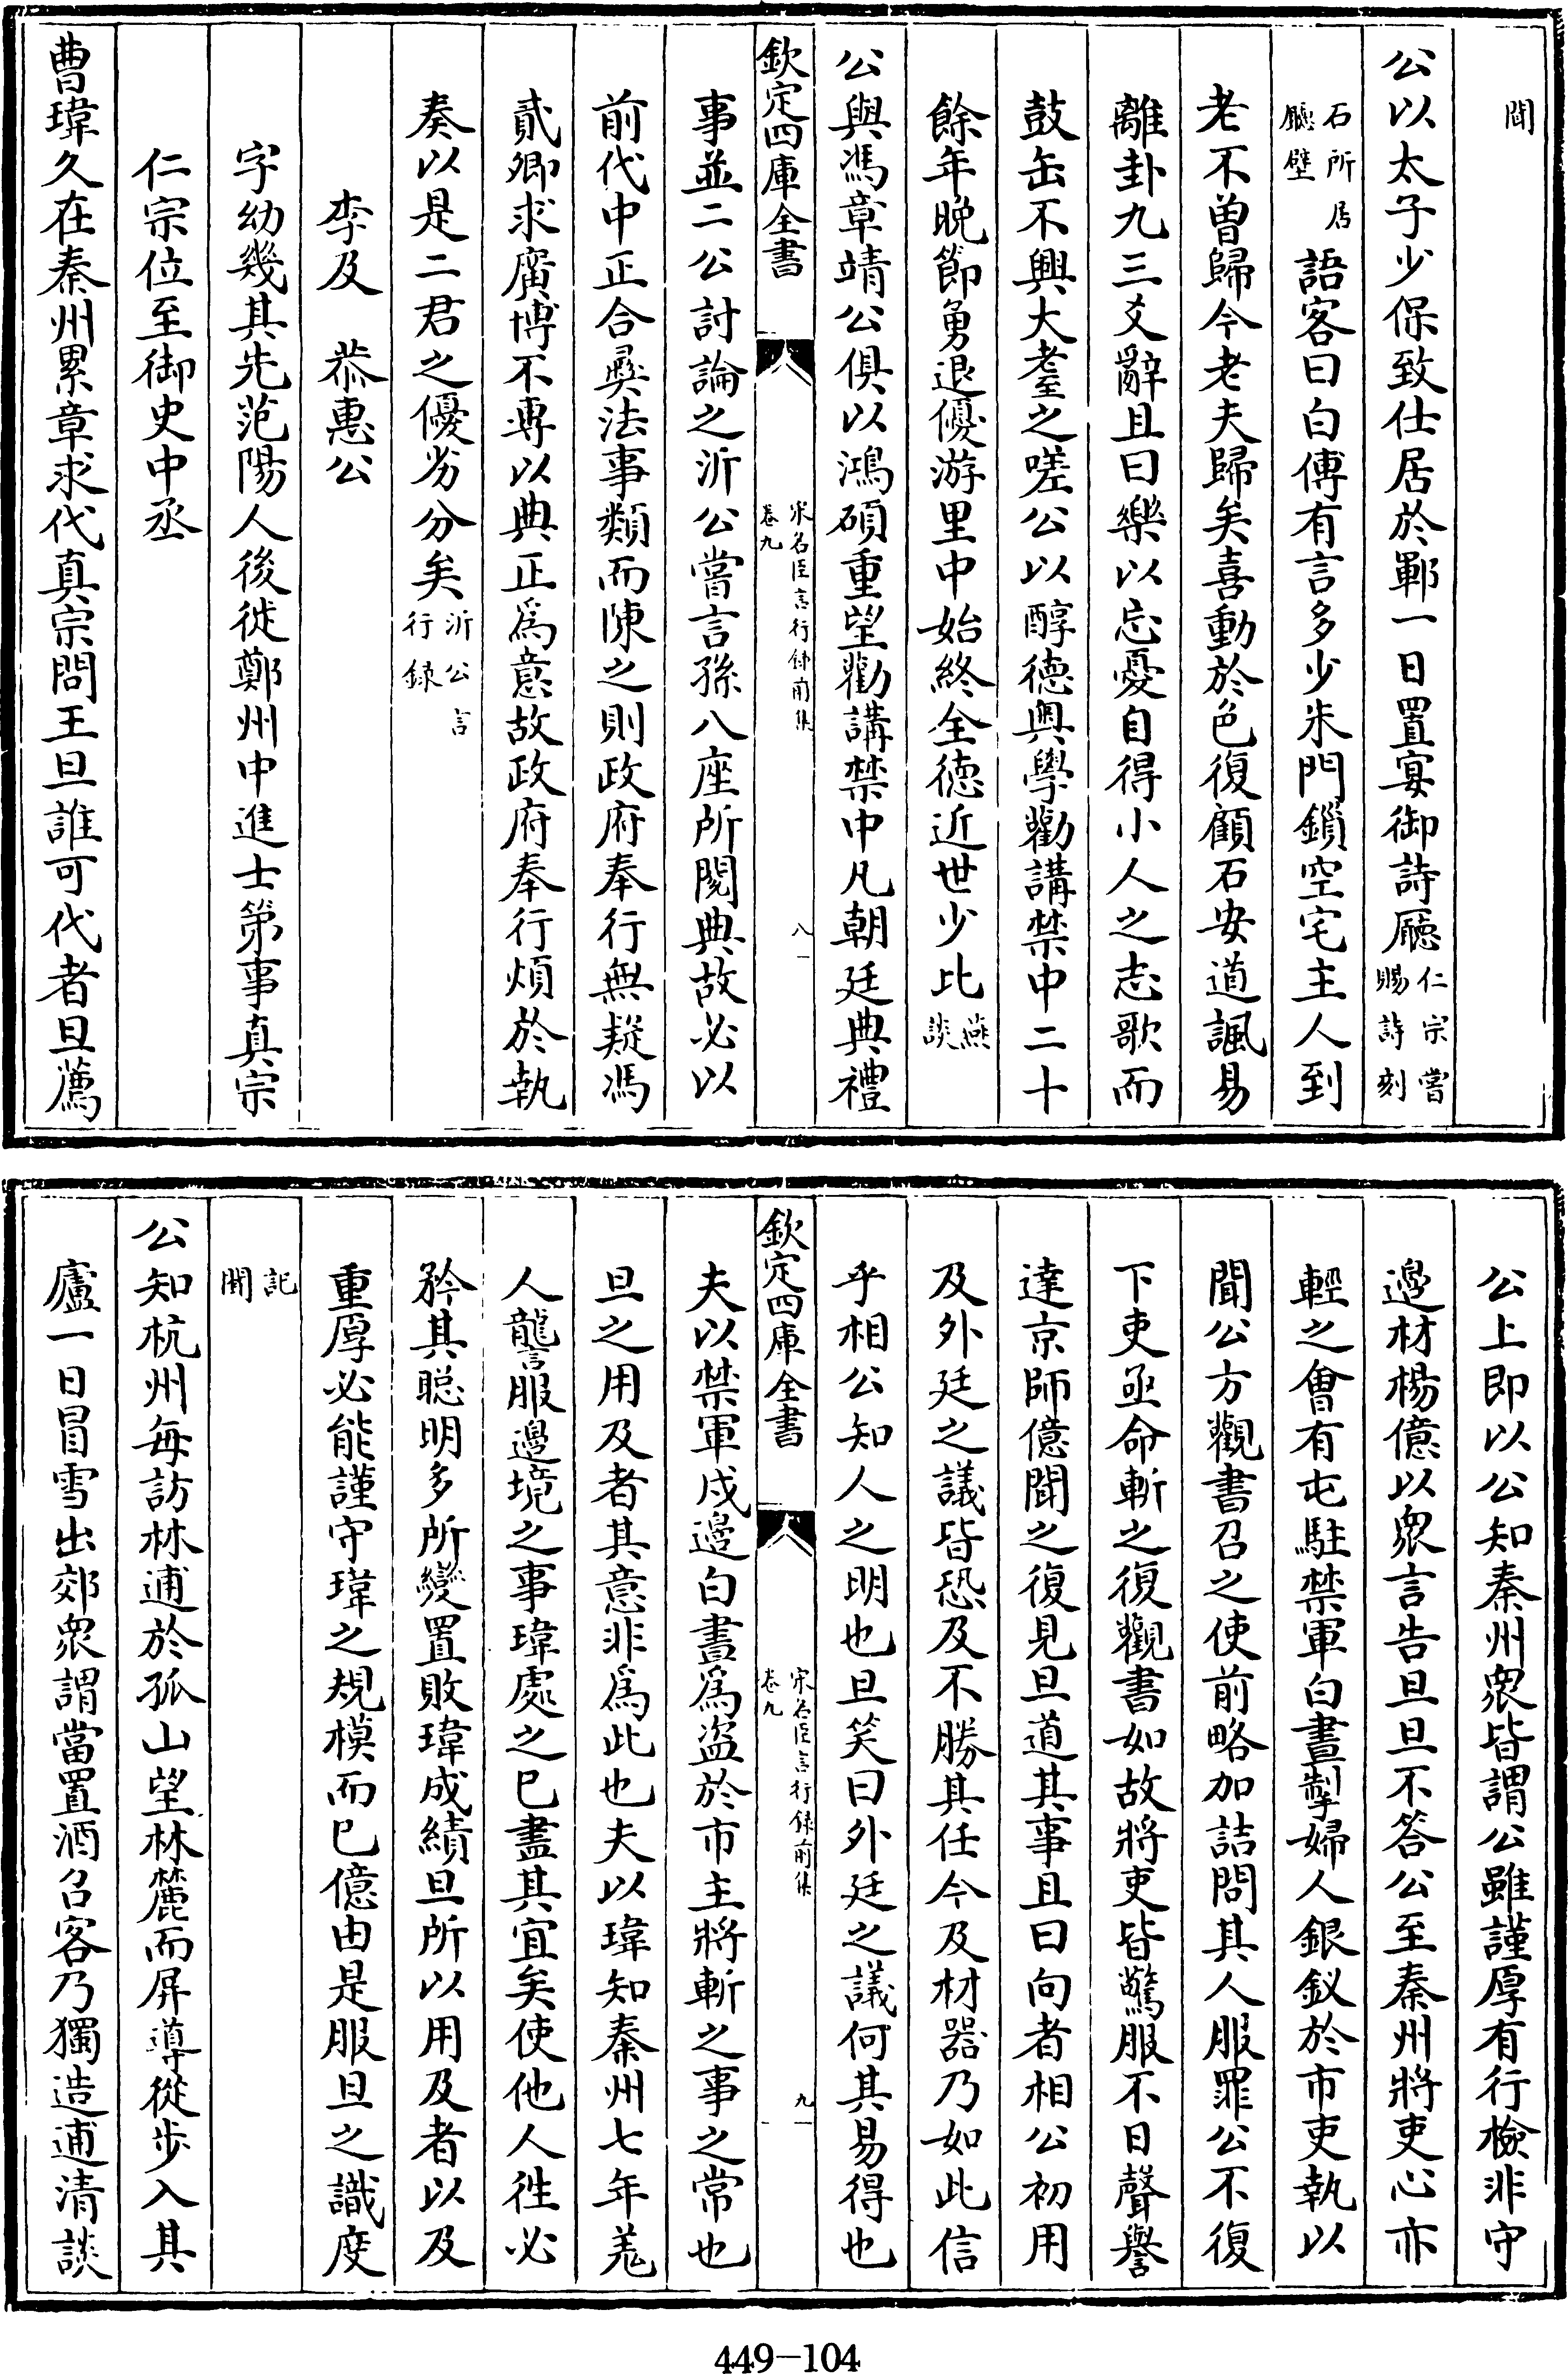 聞
公以太子少保致仕居於鄆一日置宴御詩廳仁宗嘗賜詩刻
石所居廳壁語客曰白傅有言多少朱門鎖空宅主人到
老不曾歸今老夫歸矣喜動於色復顧石安道諷易
離卦九三爻辭且曰樂以忘憂自得小人之志歌而
鼓缶不興大耋之嗟公以醇德奧學勸講禁中二十
餘年晚節勇退優游里中始終全德近世少比燕談
公與馮章靖公俱以鴻碩重望勸講禁中凡朝廷典禮
欽定四庫全書
宋名臣言行録前集
卷九
八
事並二公討論之沂公嘗言孫八座所閲典故必以
前代中正合彞法事類而陳之則政府奉行無疑馮
貳卿求廣博不專以典正為意故政府奉行煩於執
奏以是二君之優劣分矣沂公言行録
李及 恭惠公
字幼幾其先范陽人後徙鄭州中進士第事真宗
仁宗位至御史中丞
曹瑋久在秦州累章求代真宗問王旦誰可代者旦薦
公上即以公知秦州衆皆謂公雖謹厚有行檢非守
邊材楊億以衆言告旦旦不答公至秦州將吏心亦
輕之會有屯駐禁軍白晝掣婦人銀釵於市吏執以
聞公方觀書召之使前略加詰問其人服罪公不復
下吏亟命斬之復觀書如故將吏皆驚服不日聲譽
達京師億聞之復見旦道其事且曰向者相公初用
及外廷之議皆恐及不勝其任今及材器乃如此信
乎相公知人之明也旦笑曰外廷之議何其易得也
欽定四庫全書
宋名臣言行録前集
卷九
九
夫以禁軍戍邊白晝為盜於市主將斬之事之常也
旦之用及者其意非為此也夫以瑋知秦州七年羌
人讋服邊境之事瑋處之已盡其宜矣使他人往必
矜其聰明多所變置敗瑋成績旦所以用及者以及
重厚必能謹守瑋之規模而已億由是服旦之識度
記聞
公知杭州每訪林逋於孤山望林麓而屏導從步入其
廬一日冒雪出郊衆謂當置酒召客乃獨造逋清談
449-104